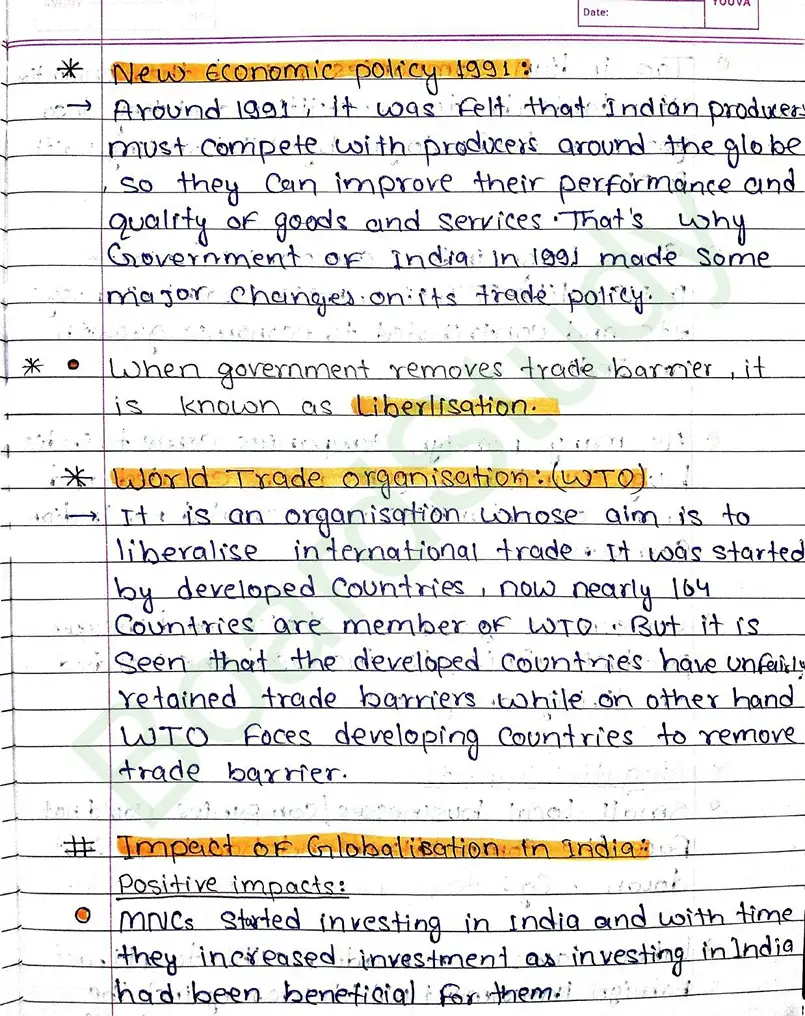 YOUVA
Date:
* New Economic policy 1991:
→ Around 1991, it was felt that Indian producers
must compete with producers around the globe
so they can improve their performance and
quality of goods and services. That's why
Government of India in 1991 made some
major changes on its trade policy.
* • When government removes trade barrier, it
is known as Liberlisation.
* World Trade organisation: (WTO)
→ It is an organisation whose aim is to
liberalise international trade. It was started
by developed countries, now nearly 164
Countries are member of WTO. But it is
seen that the developed countries have unfairly
retained trade barriers while on other hand
WTO foces developing countries to remove
trade barrier.
# Impact of Globalisation in India:
Positive impacts:
• MNCs started investing in India and with time
they increased investment as investing in India
had been beneficial for them.
BoardStudy